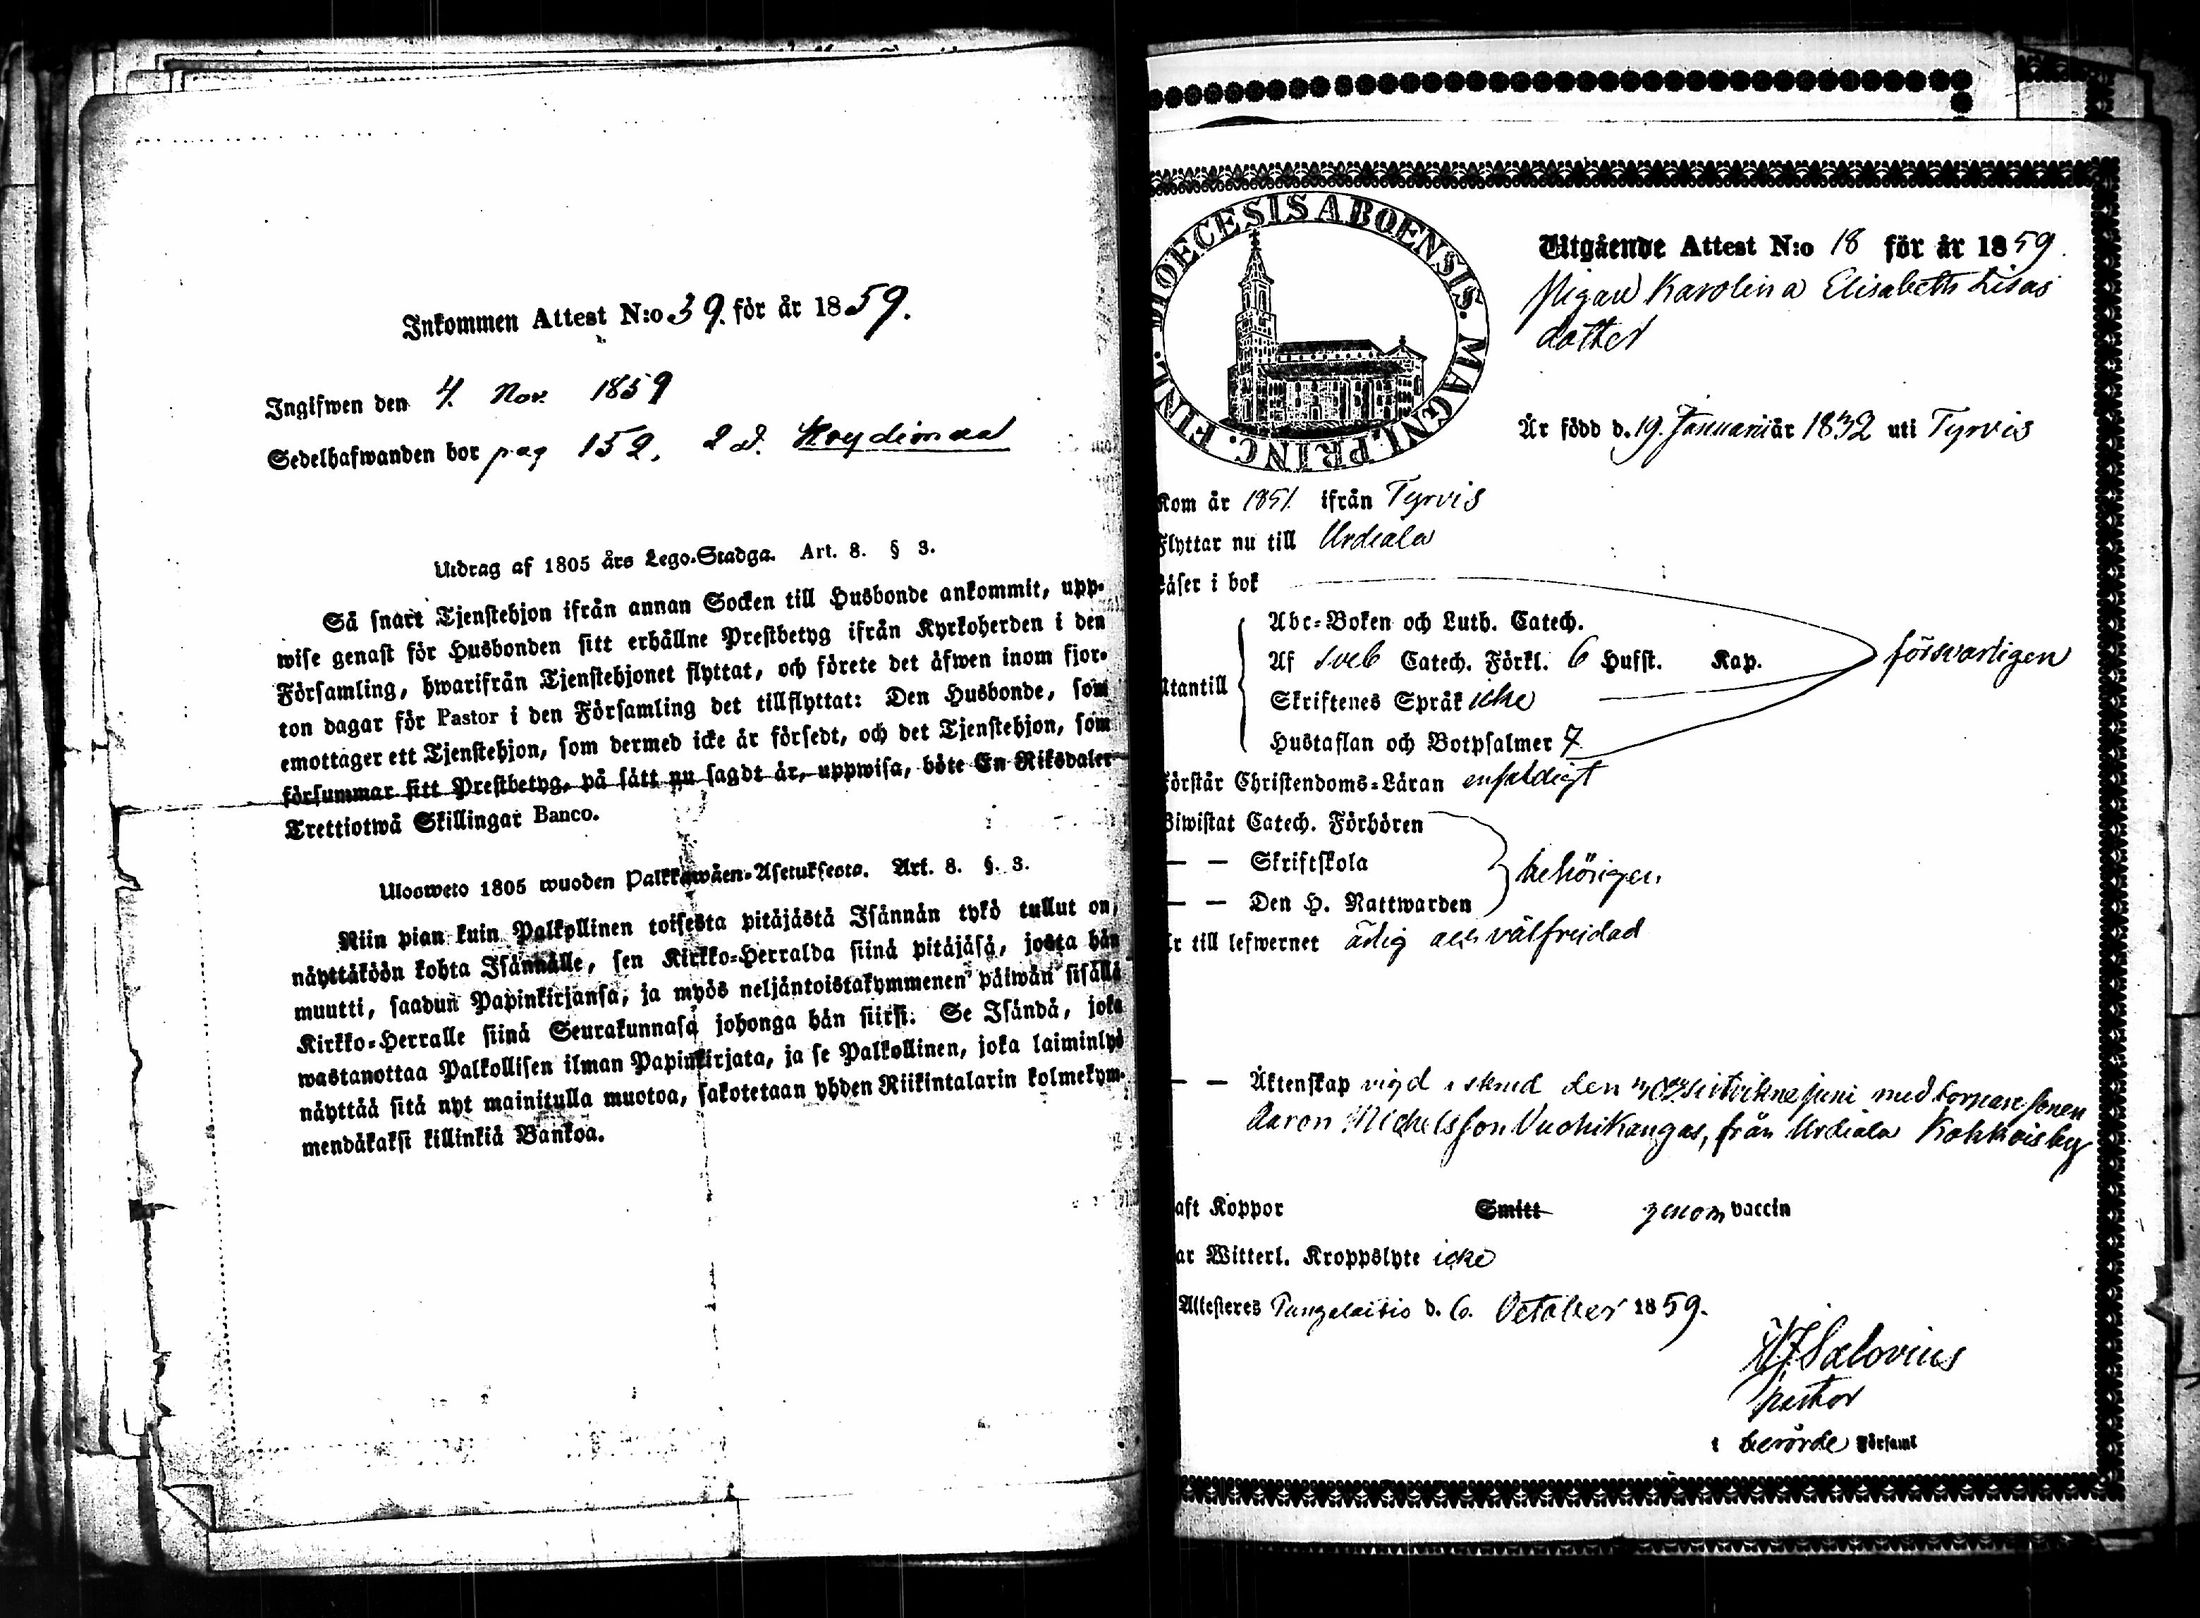 Inkommen Attest N:o 39. för år 1859.
Ingifwen den 4. Nov. 1859
Sedelhafwanden bor pag 152.
Utdrag af 1805 års Lego-Stadga. Art. 8. § 3.
Så snart Tjenstehjon ifrån annan Socken till Husbonde ankommit, upp-
wise genast för Husbonden sitt erhållne Prestbetyg ifrån Kyrkoherden i den
Församling, hwarifrån Tjenstehjonet flyttat, och förete det äfwen inom fjor-
ton dagar för Pastor i den Församling det tillflyttat: Den Husbonde, som
emottager ett Tjenstehjon, som dermed icke är försedt, och det Tjenstehjon, som
försummar sitt Prestbetyg, på sätt nu sagdt är, uppwisa, böte En Riksdaler
Trettiotwå Skillingar Banco.
Ulosweto 1805 wuoden Palkkawäen-Asetuksesta. Art. 8. §. 3.
Niin pian kuin Palkollinen toisesta pitäjästä Isännän tykö tullut on,
näyttäköön kohta Isännälle, sen Kirkko-Herralda siinä pitäjäsä, josta hän
muutti, saadun Papinkirjansa, ja myös neljäntoistakymmenen päiwän sisällä
Kirkko-Herralle siinä Seurakunnasa johonga hän siirsi. Se Isändä, joka
wastanottaa Palkollisen ilman Papinkirjata, ja se Palkollinen, joka laiminlyö
näyttää sitä nyt mainitulla muotoa, sakotetaan yhden Riikintalarin kolmekym-
mendäkaksi killinkiä Bankoa.
DIOECESIS ABOENSIS. MAGNI. PRINC. FINL.
Utgående Attest N:o 18 för år 1859.
Pigan Karolina Elisabeth Lisas
dotter
Är född d. 19. Januari år 1832 uti Tyrvis
Kom år 1851. ifrån Tyrvis
Flyttar nu till Urdiala
Läser i bok
Abc-Boken och Luth. Catech.
Af Sveb Catech. Förkl. 6 Hufst. Kap. försvarligen
Utantill
Skriftenes Språk icke
Hustaflan och Botpsalmer 7
Förstår Christendoms-Läran enfaldigt
Biwistat Catech. Förhören
— — Skriftskola behörigen.
— — Den H. Nattwarden
Är till lefwernet ärlig och välfrejdad
— — Äktenskap vigd juni med torpare sonen
Aaron Michelsson Vuohikangas, från Urdiala Kokkois by
aft Koppor Smitt genom vaccin
ar Witterl. Kroppslyte icke
Attesteres Pungalaitio d. 6. October 1859.
Salovius
pastor
i berörde Församl